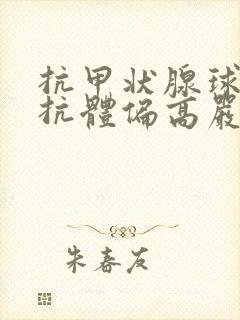 抗甲状腺球
抗體偏高嚴
朱春友